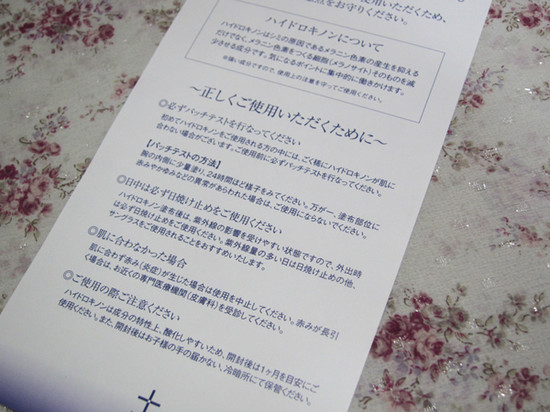 使用いただくため、
点をお守りください。
ハイドロキノンについて
ハイドロキノンはシミの原因であるメラニン色素の産生を抑える
だけでなく、メラニン色素をつくる細胞(メラノサイト)そのものを減
少させる成分です。気になるポイントに集中的に働きかけます。
※強い成分ですので、使用上の注意を守ってご使用ください。
〜正しくご使用いただくために〜
◎必ずパッチテストを行なってください
初めてハイドロキノンをご使用される方の中には、ごく稀にハイドロキノンが肌に
合わない場合がございます。ご使用前に必ずパッチテストを行なってください。
【パッチテストの方法】
腕の内側に少量塗り、24時間ほど様子をみてください。万が一、塗布部位に
赤みやかゆみなどの異常があらわれた場合は、ご使用にならないでください。
◎日中は必ず日焼け止めをご使用ください
ハイドロキノン塗布後は、紫外線の影響を受けやすい状態ですので、外出時
は必ず日焼け止めをご使用ください。紫外線量の多い日は日焼け止めの他、
サングラスをご使用されることをおすすめいたします。
◎肌に合わなかった場合
肌に合わず赤み(炎症)が生じた場合は使用を中止してください。赤みが長引
く場合は、お近くの専門医療機関(皮膚科)を受診してください。
◎ご使用の際ご注意ください
ハイドロキノンは成分の特性上、酸化しやすいため、開封後は1ヶ月を目安にご
使用ください。また、開封後はお子様の手の届かない、冷暗所にて保管ください。